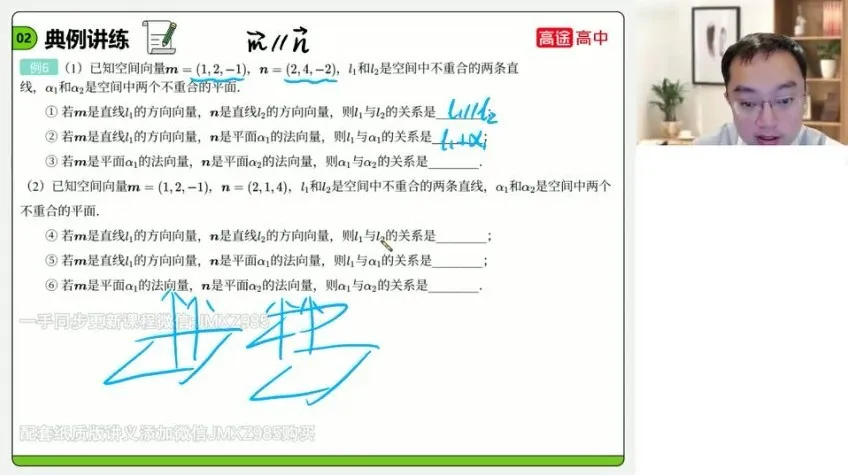 02 典例讲练 m⃗ // n⃗ 高途高中
例6 （1）已知空间向量m = (1, 2, −1)，n = (2, 4, −2)，l₁和l₂是空间中不重合的两条直
线，α₁和α₂是空间中两个不重合的平面.
① 若m是直线l₁的方向向量，n是直线l₂的方向向量，则l₁与l₂的关系是 l₁//l₂
② 若m是直线l₁的方向向量，n是平面α₁的法向量，则l₁与α₁的关系是 l₁⊥α₁；
③ 若m是平面α₁的法向量，n是平面α₂的法向量，则α₁与α₂的关系是________.
（2）已知空间向量m = (1, 2, −1)，n = (2, 1, 4)，l₁和l₂是空间中不重合的两条直线，α₁和α₂是空间中两个
不重合的平面.
④ 若m是直线l₁的方向向量，n是直线l₂的方向向量，则l₁与l₂的关系是________；
⑤ 若m是直线l₁的方向向量，n是平面α₁的法向量，则l₁与α₁的关系是________；
⑥ 若m是平面α₁的法向量，n是平面α₂的法向量，则α₁与α₂的关系是________.
一手同步更新课程微信:JMKZ985
配套纸质版讲义添加微信JMKZ985购买